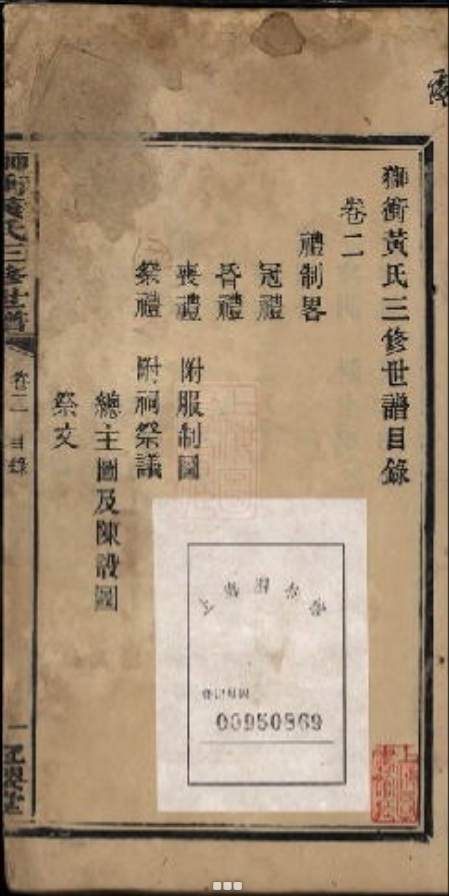 獅衝黃氏三修世譜目錄
卷二
禮制畧
冠禮
昏禮
喪禮 附服制圖
祭禮 附祠祭議
總主圖及陳設圖
祭文
獅衝黃氏三修世譜
卷二 目錄
一
00950869